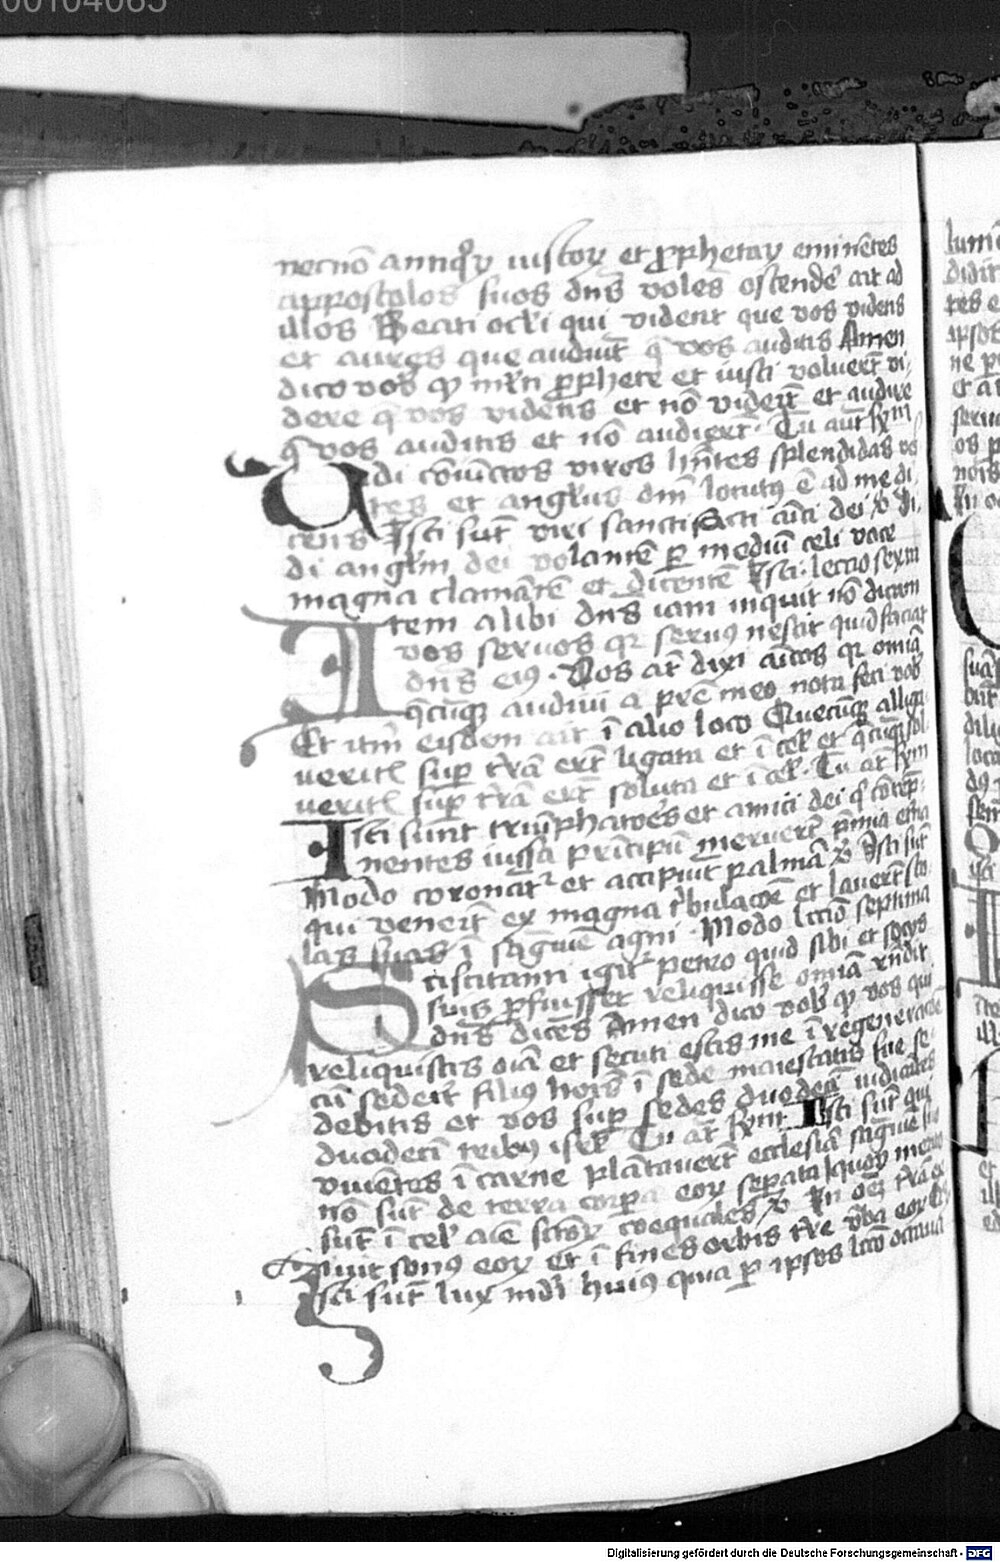 00104065
necnō antiqͦꝝ iustoꝝ et ꝓphetaꝝ eminētes
appostolos suos dn̄s volēs ostendeʼ ait ad
illos Beati ocl̄i qui vident que vos videtis
et aures que audiūt q̄ vos auditis Amen
dico vob̄ qꝫ ml̄ti ꝓphete et iusti voluerūt vi
dere q̄ vos videtis et nō viderūt et audire
q̄ vos auditis et nō audierūt. Tu aūt
Vidi cōiūctos viros hn̄tes splendidas ves
tes et angl̄us dn̄i locutꝰ ē ad me di
cens Isti sūt viri sancti facti amici dei ℣ Vi
di angl̄m dei volantē ꝑ mediū celi voce
magna clamātē et dicentē Isti. lectio sexta
Item alibi dn̄s iam inquit nō dicam
vos servos qꝛ servꝰ nescit quid faciat
dn̄s eiꝰ. Vos aūt dixi amicos qꝛ omīa
q̄cūqꝫ audivi a pr̄e meo nota feci vob̄
Et itm̄ eisdem ait ī alio loco Quecūqꝫ alliga
veritis sup̄ tr̄ā erūt ligata et ī cel̄ et q̄cūqꝫ sol
veritis sup̄ tr̄ā erūt soluta et ī cel̄. Tu aūt
Isti sunt triūphatores et amici dei q̄ cōtēp
nentes iussa prīcipū meruerūt p̄mia et̄na
Modo coronant᷑ et accipiūt palmā ℣ Isti sūt
qui venerūt ex magna t̄bulacōe et laverūt sto
las suas ī sāgwīe agni. Modo lectio septima
Sciscitanti igit᷑ petro quid sibi et socijs
suis ꝓfuisset reliquisse omīa rn̄dit
dn̄s dicēs Amen dico vob̄ qꝫ vos qui
reliquistis oīa et secuti estis me ī regeneracōe
cū sederit filius hoīs ī sede maiestatis sue se
debitis et vos sup̄ sedes duodecī iudicātes
duodecī tribꝰ isrl̄. Tu aūt Isti sūt qui
viventes ī carne plātaverūt ecclesiā sāgwīe suo
nō sūt de terra corpa eoꝝ sepata
sūt ī cel̄ aīe sctōꝝ coequales ℣ In oēm tr̄ā ex
ivit sonꝰ eoꝝ et ī fines orbis tr̄e v̄ba eoꝝ
Isti sūt lux mūdi huiꝰ quia ꝑ ipsos lectio octava
Digitalisierung gefördert durch die Deutsche Forschungsgemeinschaft - DFG